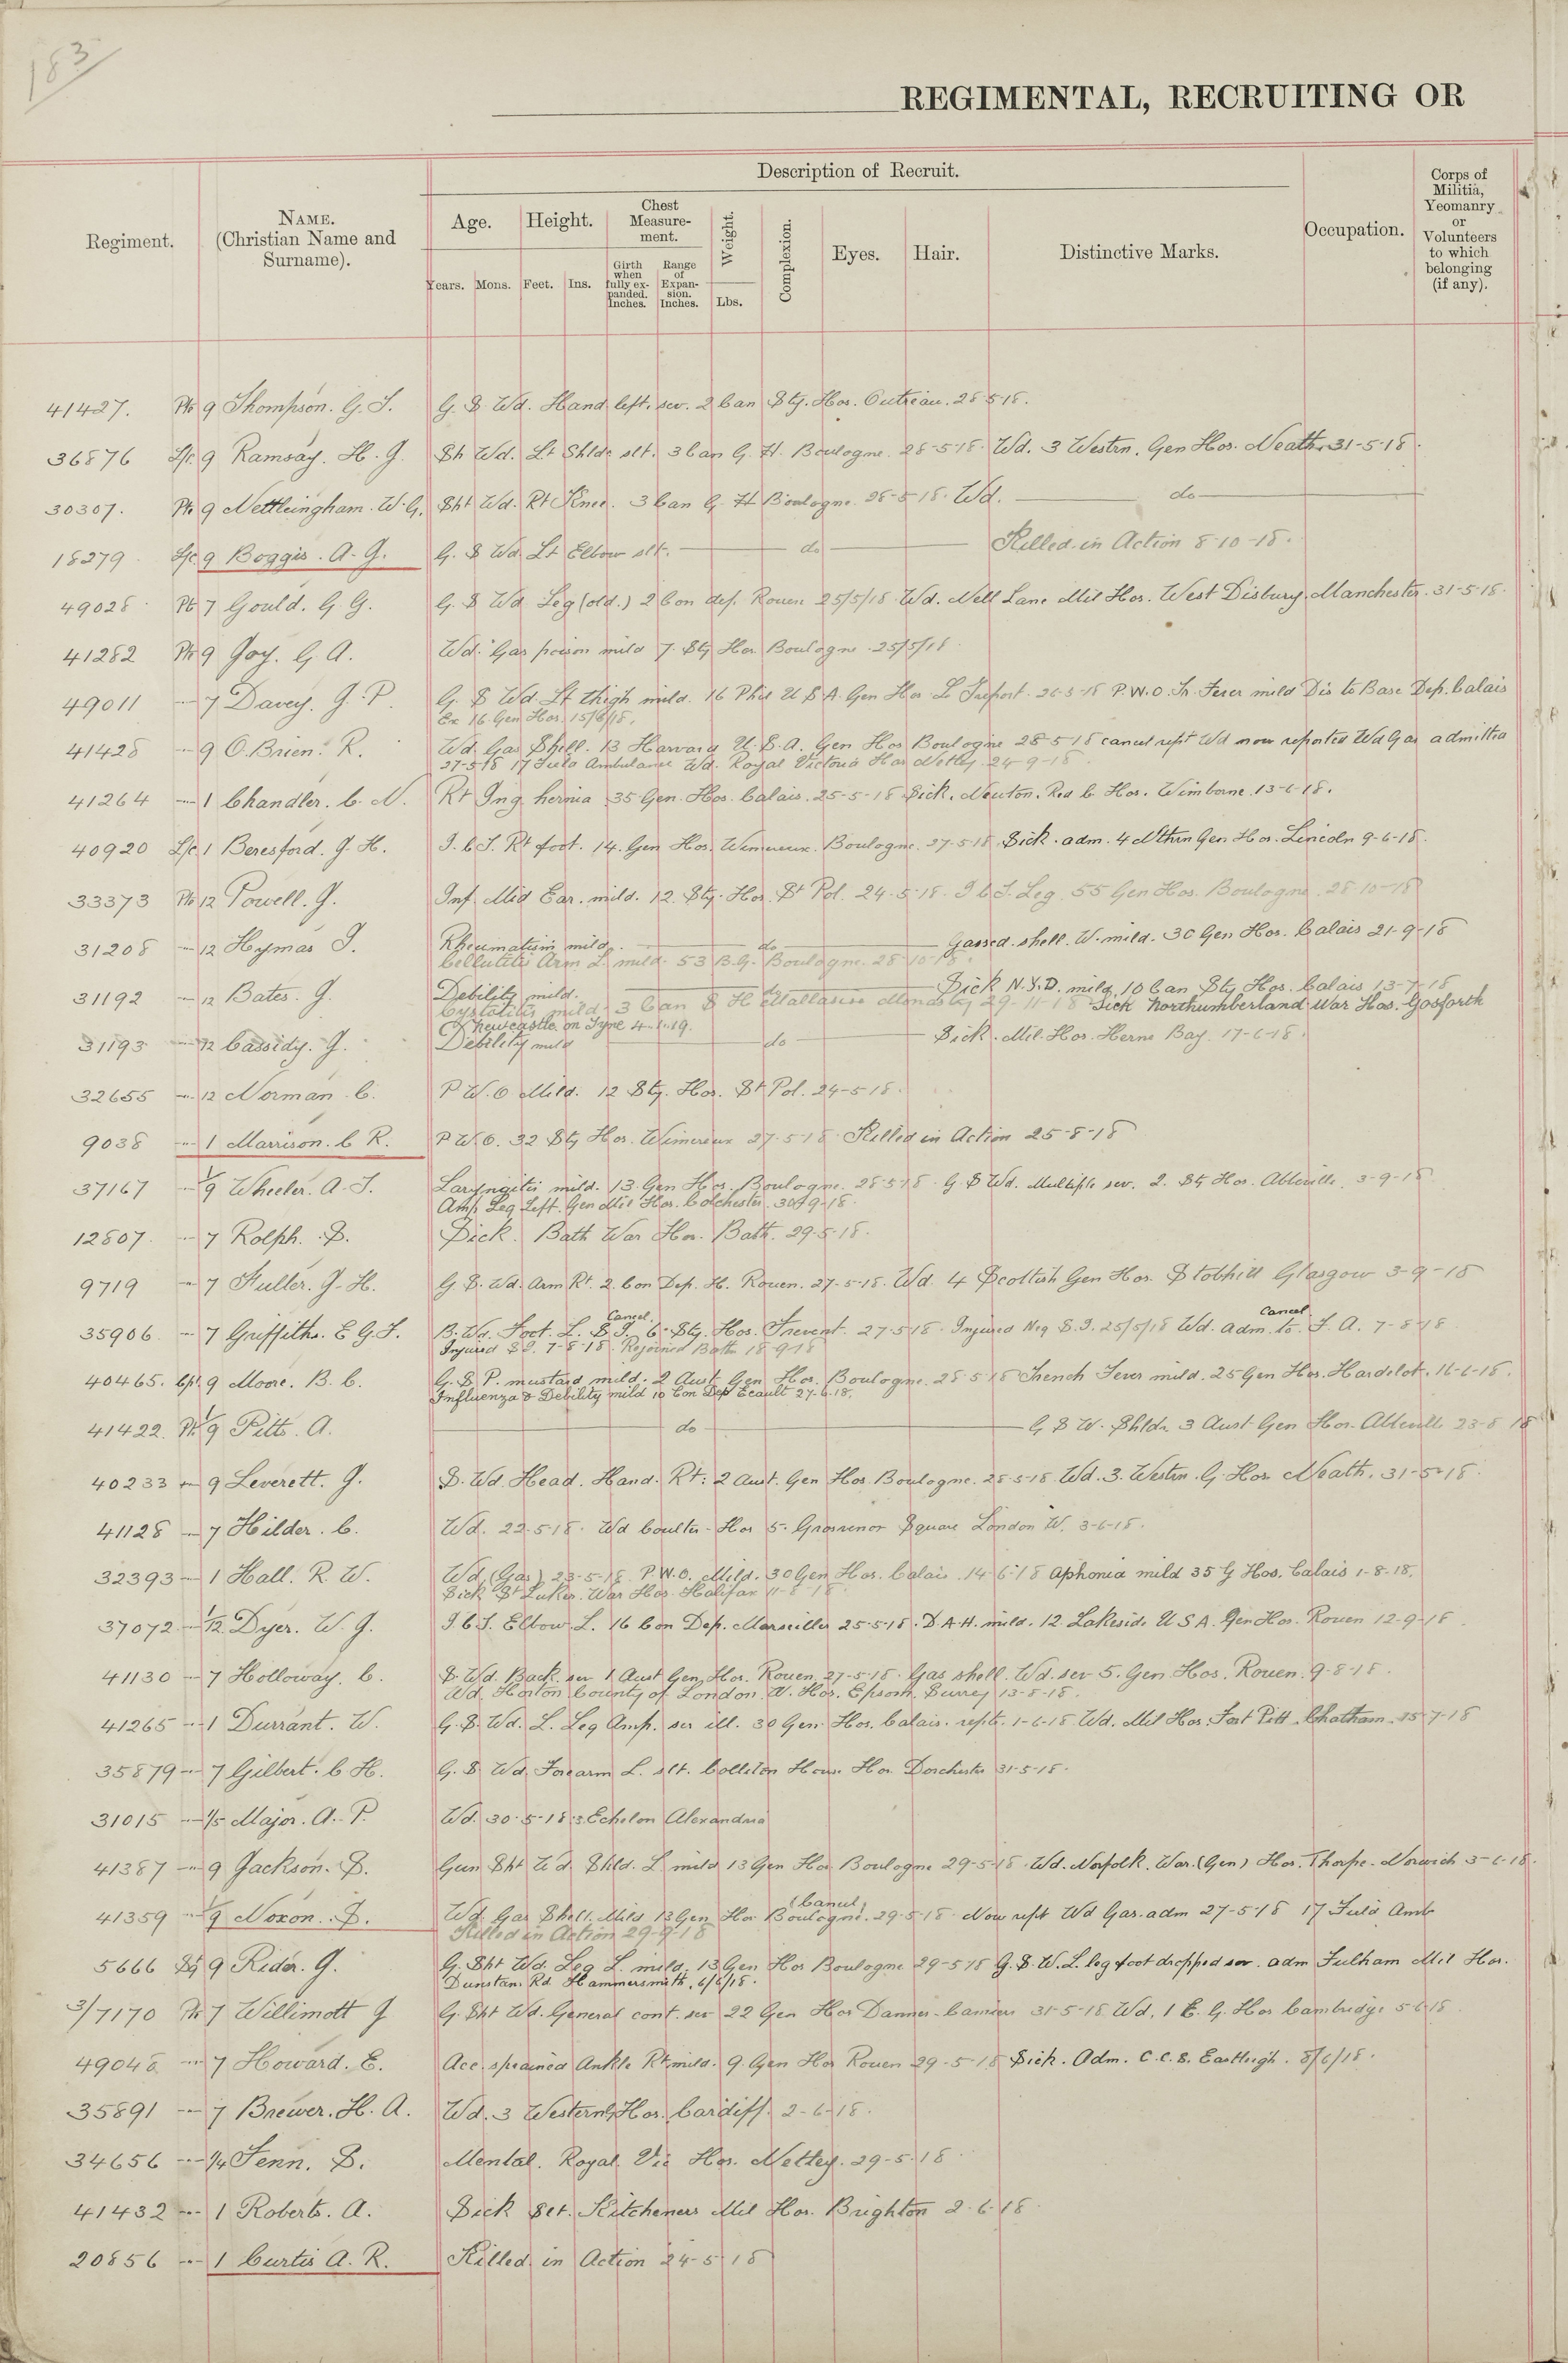 183
REGIMENTAL, RECRUITING OR
Regiment.
NAME.
(Christian Name and
Surname).
Description of Recruit.
Age.
Height.
Chest
Measure-
ment.
Weight.
Complexion.
Eyes.
Hair.
Distinctive Marks.
Occupation.
Corps of
Militia,
Yeomanry
or
Volunteers
to which
belonging
(if any).
Years. Mons. Feet. Ins.
Girth
when
fully ex-
panded.
Inches.
Range
of
Expan-
sion.
Inches.
Lbs.
41427. Pte 9 Thompson. G. T. G. S Wd. Hand left. sev. 2 Can Sty. Hos. Outreau. 28 5-18.
36876 L/c. 9 Ramsay. H. G. Sh Wd. Lt Shldr slt. 3 Can G. H. Boulogne. 28-5-18. Wd. 3 Westrn. Gen Hos. Neath. 31-5-18.
30307. Pte 9 Nettleingham. W. G. Sht Wd. Rt Knee. 3 Can G. H Boulogne. 28-5-18. Wd. do
18279 L/c. 9 Boggis. A. G. G. S Wd Lt Elbow slt. do Killed in Action 8-10-18.
49028 Pte 7 Gould. G G. G. S Wd Leg (old.) 2 Con dep. Rouen 25/5/18 Wd. Nell Lane Mil Hos. West Disbury. Manchester. 31-5-18.
41282 Pte 9 Joy. G A. Wd. Gas poison mild 7. Sty Hos. Boulogne. 25/5/18
49011 " 7 Davey. G. P. G. S Wd. Lt thigh mild. 16 Phil U S A. Gen Hos Le Treport. 26-5-18 P.W.O. Tr. Fever mild Dis to Base Dep. Calais
Ex 16 Gen Hos. 15/6/18.
41428 " 9 O.Brien. R. Wd. Gas Shell. 13 Harvard U. S. A. Gen Hos Boulogne 28-5-18 cancel rept Wd now reported Wd Gas admitted
27-5-18 17 Field Ambulance Wd. Royal Victoria Hos Netley. 24-9-18.
41264 " 1 Chandler. C. N. Rt Ing hernia 35 Gen. Hos. Calais. 25-5-18 Sick. Newton. Red C. Hos. Wimborne. 13-6-18.
40920 L/c 1 Beresford. J. H. I. C. T. Rt foot. 14. Gen Hos. Wimereux. Boulogne. 27-5-18. Sick. adm. 4 Nthrn Gen Hos. Lincoln 9-6-18.
33373 Pte 12 Powell. J. Inf Mid Ear. mild. 12. Sty. Hos. St Pol. 24-5-18. I C T. Leg. 55 Gen Hos. Boulogne. 28-10-18
31208 " 12 Hymas J. Rheumatism mild. do Gassed. shell. W. mild. 30 Gen Hos. Calais 21-9-18
Cellulitis Arm L. mild. 53 B.G. Boulogne. 28-10-18.
31192 " 12 Bates. J. Debility mild. do Sick N.Y.D. mild 10 Can Sty Hos. Calais 13-7-18
Cystolitis mild. 3 Can S H Mallassise Monastry 29-11-18 Sick Northumberland War Hos. Gosforth
Newcastle on Tyne 4-1-19.
31193 " 12 Cassidy. J. Debility mild do Sick. Mil. Hos. Herne Bay. 17-6-18.
32655 " 12 Norman. C. P W. O Mild. 12 Sty. Hos. St Pol. 24-5-18.
9038 " 1 Marrison. C R. P W. O. 32 Sty Hos. Wimereux 27-5-18 Killed in Action 25-8-18
37167 " 1/9 Wheeler. A. T. Laryngitis mild. 13 Gen Hos. Boulogne. 28-5-18. G. S Wd. Multiple sev. 2. Sty Hos. Abbeville. 3-9-18
Amp Leg Left. Gen Mil Hos. Colchester. 30-9-18.
12807. " 7 Rolph. S. Sick. Bath War Hos. Bath. 29-5-18.
9719 " 7 Fuller. G. H. G. S. Wd. Arm Rt. 2. Con Dep. H. Rouen. 27-5-18. Wd. 4 Scottish Gen Hos. Stobhill Glasgow 3-9-18
Cancel. Cancel.
35906 " 7 Griffiths. E G. T. B. Wd. Foot. L. S I. 6 Sty. Hos. Frevent. 27-5-18. Injured Neg S. I. 25/5/18 Wd. adm. to F. A. 7-8-18
Injured S I. 7-8-18. Rejoined Battn 18-9-18
40465. Cpl. 9 Moore. B. C. G. S P. mustard mild. 2 Aust Gen Hos. Boulogne. 28-5-18 Trench Fever mild. 25 Gen Hos. Hardelot. 16-6-18.
Influenza & Debility mild 10 Con Dep Ecault 27-6-18.
41422. Pte 1/9 Pitts. A. do G S W. Shldr. 3 Aust Gen Hos. Abbeville 23-8-18
40233 " 9 Leverett. J. S. Wd. Head. Hand. Rt: 2 Aust. Gen Hos. Boulogne. 28-5-18 Wd. 3. Westrn. G. Hos. Neath. 31-5-18.
41128 " 7 Hilder. C. Wd. 22-5-18. Wd Coulter-Hos 5. Grosvenor Square London W. 3-6-18.
32393 " 1 Hall. R. W. Wd (Gas) 23-5-18 P.W.O. Mild. 30 Gen Hos. Calais. 14-6-18 Aphonia mild 35 G Hos. Calais 1-8-18.
Sick St Lukes. War Hos. Halifax 11-8-18.
37072 " 1/12 Dyer. W. J. I. C. T. Elbow L. 16 Con Dep. Marseilles 25-5-18. D A H. mild. 12 Lakeside U S A. Gen Hos. Rouen 12-9-18.
41130 " 7 Holloway. C. S. Wd. Back sev 1 Aust Gen Hos. Rouen. 27-5-18. Gas shell. Wd. sev 5. Gen. Hos. Rouen. 9-8-18.
Wd. Horton County of London W. Hos. Epsom. Surrey 13-8-18.
41265 " 1 Durrant. W. G. S. Wd. L. Leg Amp. ser ill. 30 Gen Hos. Calais. rept. 1-6-18. Wd. Mil Hos. Fort Pitt. Chatham. 15-7-18
35879 " 7 Gilbert. C H. G. S Wd Forearm L. slt. Colliton House Hos. Dorchester 31-5-18.
31015 " 1/5 Major. A. P. Wd. 30-5-18. 3. Echelon Alexandria
41387 " 9 Jackson. S. Gun Sht Wd. Shld. L mild 13 Gen Hos Boulogne 29-5-18 Wd. Norfolk. War. (Gen) Hos. Thorpe. Norwich 3-6-18.
(Cancel)
41359 " 1/9 Noxon. S. Wd. Gas Shell. Mild 13 Gen Hos Boulogne. 29-5-18. Now rept Wd Gas. adm 27-5-18 17 Field Amb
Killed in Action 29-9-18
5666 Sgt 9 Rider. J. G. Sht Wd. Leg L. mild. 13 Gen Hos Boulogne 29-5-18 G. S. W. L. leg foot dropped sev. adm Fulham Mil Hos.
Dunstan Rd Hammersmith. 6/6/18.
3/7170 Pte 7 Willimott J G. Sht Wd. General cont. sev 22 Gen Hos Dannes-Camiers 31-5-18 Wd. 1 E. G. Hos Cambridge 5-6-18.
49048 " 7 Howard. E. Acc. sprained Ankle Rt mild. 9. Gen Hos Rouen 29-5-18 Sick. Adm. C.C.S. Eastleigh. 8/6/18.
35891 " 7 Brewer. H. A. Wd. 3 Western G Hos. Cardiff. 2-6-18.
34656 " 1/4 Fenn. S. Mental. Royal. Vic Hos. Netley. 29-5-18
41432 " 1 Roberts. A. Sick Set. Kitcheners Mil Hos. Brighton 2-6-18
20856 " 1 Curtis A. R. Killed in Action 24-5-18